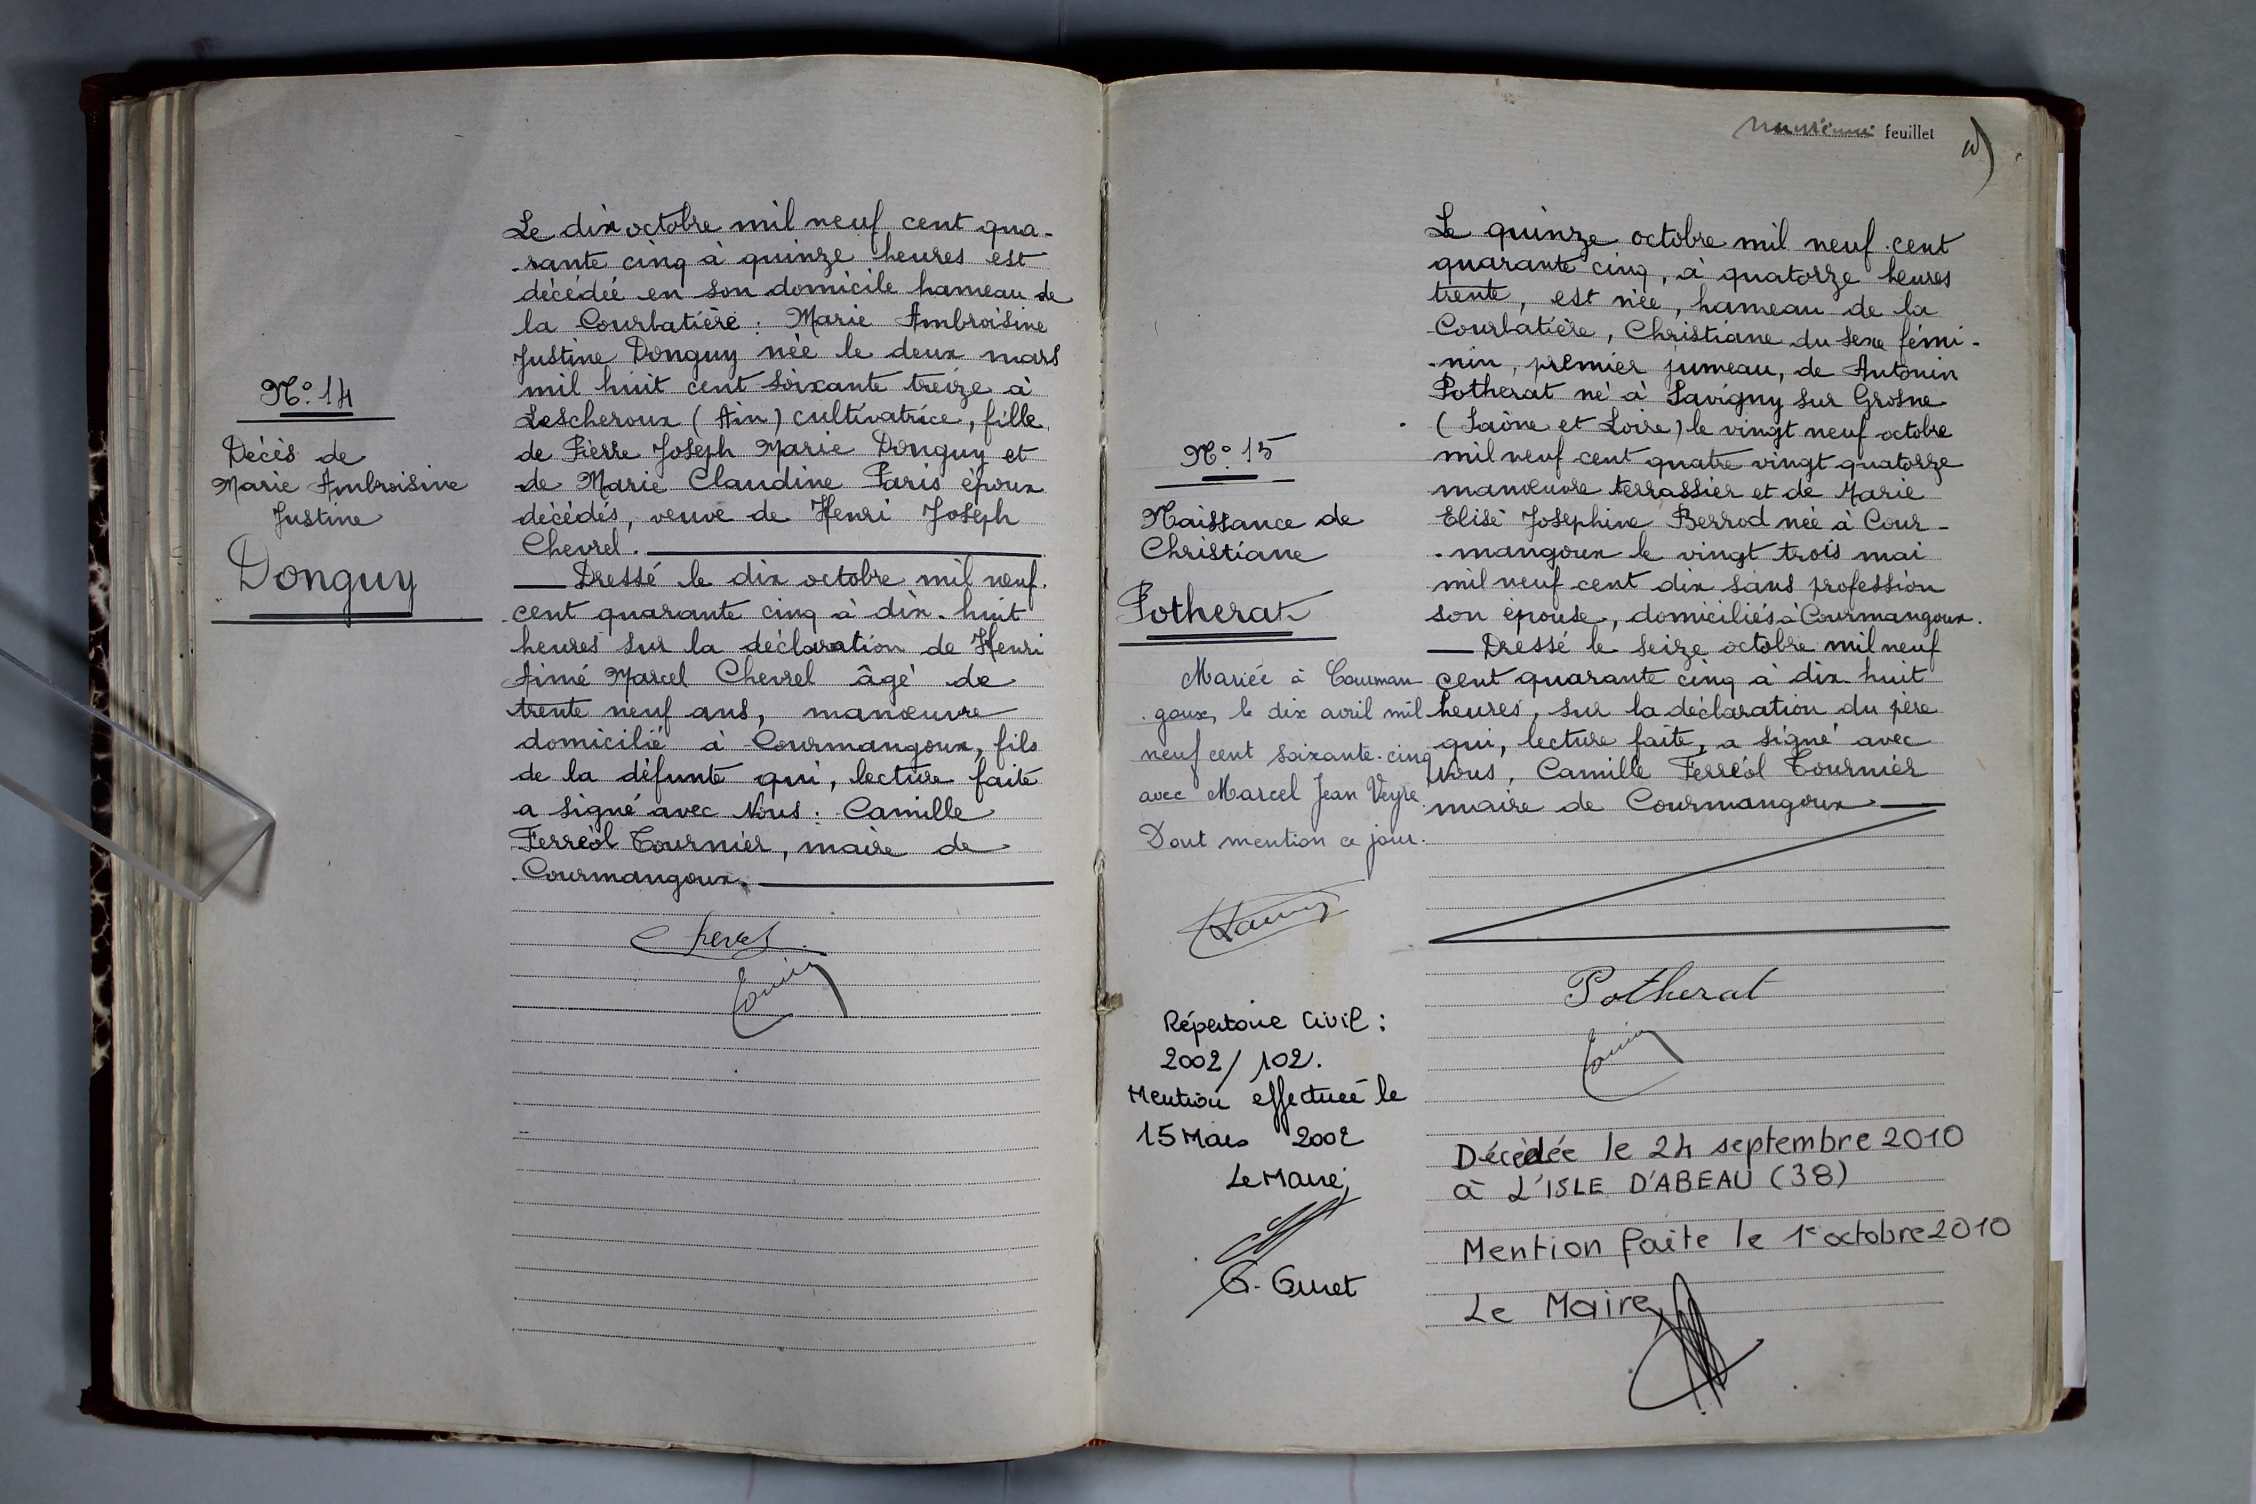 N° 14
Décès de
Marie Ambroisine
Justine
Donguy
Le dix octobre mil neuf cent qua-
-rante cinq à quinze heures est
décédée en son domicile hameau de
la Courbatière : Marie Ambroisine
Justine Donguy née le deux mars
mil huit cent soixante treize à
Lescheroux (Ain) cultivatrice, fille
de Pierre Joseph Marie Donguy et
de Marie Claudine Paris époux
décédés, veuve de Henri Joseph
Chevrel.
Dressé le dix octobre mil neuf
cent quarante cinq à dix-huit
heures sur la déclaration de Henri
Aimé Marcel Chevrel âgé de
trente neuf ans, manœuvre
domicilié à Courmangoux, fils
de la défunte qui, lecture faite
a signé avec Nous : Camille
Ferréol Tournier, maire de
Courmangoux.
Chevrel
feuillet
N° 15
Naissance de
Christiane
Potherat
Mariée à Courman
-goux, le dix avril mil
neuf cent soixante-cinq
avec Marcel Jean Veyre.
Dont mention ce jour.
Répertoire Civil :
2002/102.
Mention effectuée le
15 Mars 2002
Le Maire,
Le quinze octobre mil neuf cent
quarante cinq, à quatorze heures
trente, est née, hameau de la
Courbatière, Christiane du sexe fémi-
-nin, premier jumeau, de Antonin
Potherat né à Savigny sur Grosne
(Saône et Loire) le vingt neuf octobre
mil neuf cent quatre vingt quatorze
manœuvre terrassier et de Marie
Elise Joséphine Berrod née à Cour-
-mangoux le vingt trois mai
mil neuf cent dix sans profession
son épouse, domiciliés à Courmangoux.
Dressé le seize octobre mil neuf
cent quarante cinq à dix-huit
heures, sur la déclaration du père
qui, lecture faite, a signé avec
Nous, Camille Ferréol Tournier
maire de Courmangoux
Potherat
Décédée le 24 septembre 2010
à L'ISLE D'ABEAU (38)
Mention faite le 1e octobre 2010
Le Maire